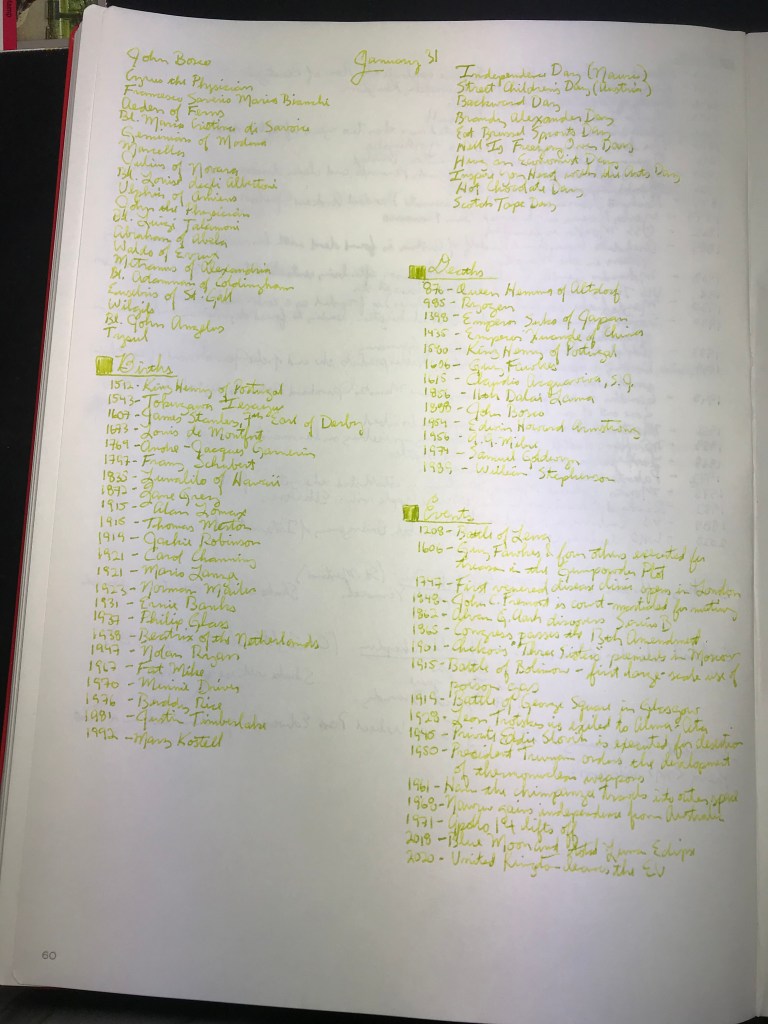 January 31
John Bosco
Cyrus the Physician
Francesco Saverio Maria Bianchi
Aedan of Ferns
Bl. Maria Cristina de Savoia
Geminian of Modena
Marcella
Julius of Novara
Bl. Louise degli Albertoni
Ulphia of Amiens
John the Physician
Bl. Luigi Talamoni
Abraham of Abela
Waldo of Evreux
Metranus of Alexandria
Bl. Adamnan of Coldingham
Eusebius of St. Gall
Wilgils
Bl. John Angelus
Tysul
Independence Day (Nauru)
Street Children's Day (Austria)
Backward Day
Brandy Alexander Day
Eat Brussel Sprouts Day
Hell Is Freezing Over Day
Hug an Day
Inspire Your Heart with the Arts Day
Hot Chocolate Day
Scotch Tape Day
Births
1512 - King Henry of Portugal
1543 - Tokugawa Ieyasu
1607 - James Stanley, 7th Earl of Derby
1673 - Louis de Montfort
1769 - Andre-Jacques Garnerin
1797 - Franz Schubert
1835 - Lunalilo of Hawaii
1872 - Zane Grey
1915 - Alan Lomax
1915 - Thomas Merton
1919 - Jackie Robinson
1921 - Carol Channing
1921 - Mario Lanza
1923 - Norman Mailer
1931 - Ernie Banks
1937 - Philip Glass
1938 - Beatrix of the Netherlands
1947 - Nolan Ryan
1967 - Fat Mike
1970 - Minnie Driver
1976 - Buddy Rice
1981 - Justin Timberlake
1992 - Mary Kostell
Deaths
876 - Queen Hemma of Altdorf
985 - Ryogen
1398 - Emperor Suko of Japan
1435 - Emperor Xuande of China
1580 - King Henry of Portugal
1606 - Guy Fawkes
1615 - Claudio Acquaviva, S.J.
1856 - 11th Dalai Lama
1888 - John Bosco
1954 - Edwin Howard Armstrong
1956 - A. A. Milne
1974 - Samuel Goldwyn
1989 - William Stephenson
Events
1208 - Battle of Lena
1606 - Guy Fawkes & four others executed for
treason in the Gunpowder Plot
1747 - First venereal disease clinic opens in London
1848 - John C. Fremont is court-martialed for mutiny
1862 - Alvan G. Clark discovers Sirius B
1865 - Congress passes the 13th Amendment
1901 - Chekov's "Three Sisters" premiers in Moscow
1915 - Battle of Bolimow - first large-scale use of
poison gas
1919 - Battle of George Square in Glasgow
1928 - Leon Trotsky is exiled to Alma-Ata
1945 - Private Eddie Slovik is executed for desertion
1950 - President Truman orders the development
of thermonuclear weapons
1961 - Ham the chimpanzee travels into outer space
1968 - Nauru gains independence from Australia
1971 - Apollo 14 lifts off
2018 - Blue Moon and Total Lunar Eclipse
2020 - United Kingdom leaves the EU
60